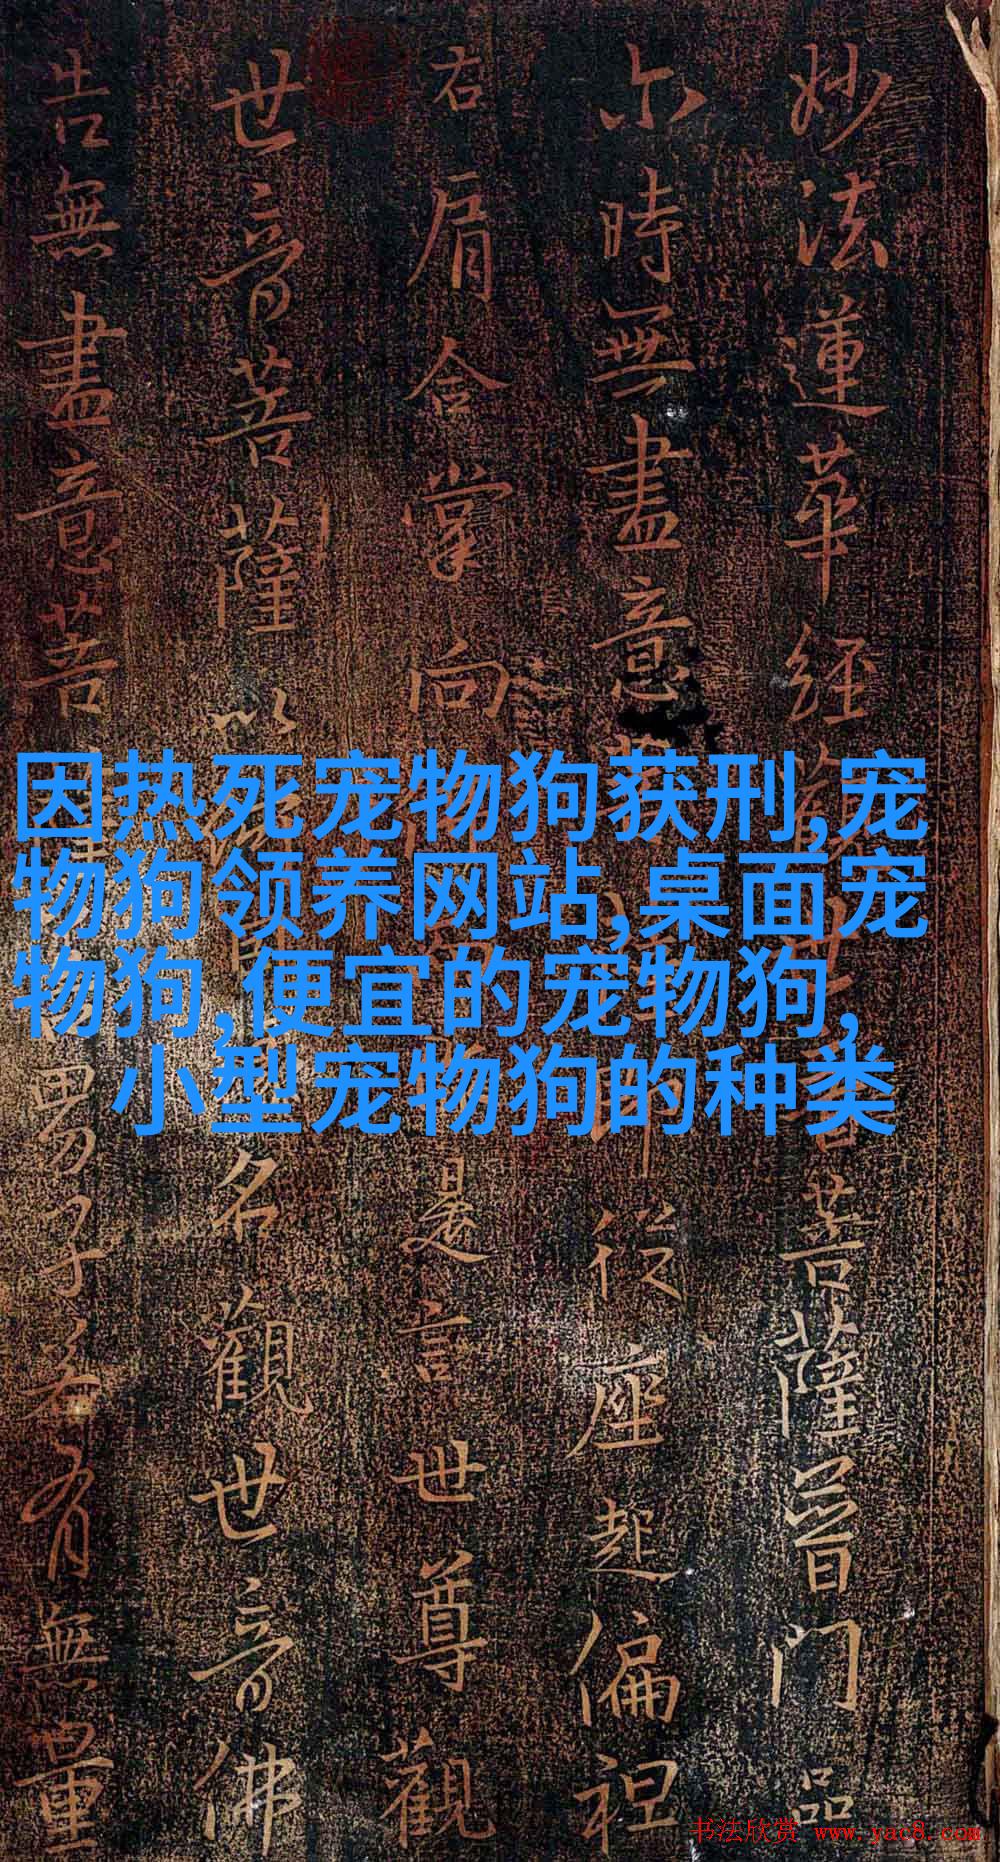 妙法蓮華經觀世音菩薩普門品
尔時無盡意菩薩即從座起偏袒
右肩合掌向是言世尊觀
世音菩薩以名觀世音佛
告無盡意菩男子若有無量
因热死宠物狗获刑,宠
物狗领养网站,桌面宠
物狗,便宜的宠物狗,
小型宠物狗的种类
书法欣赏 www.yac8.com